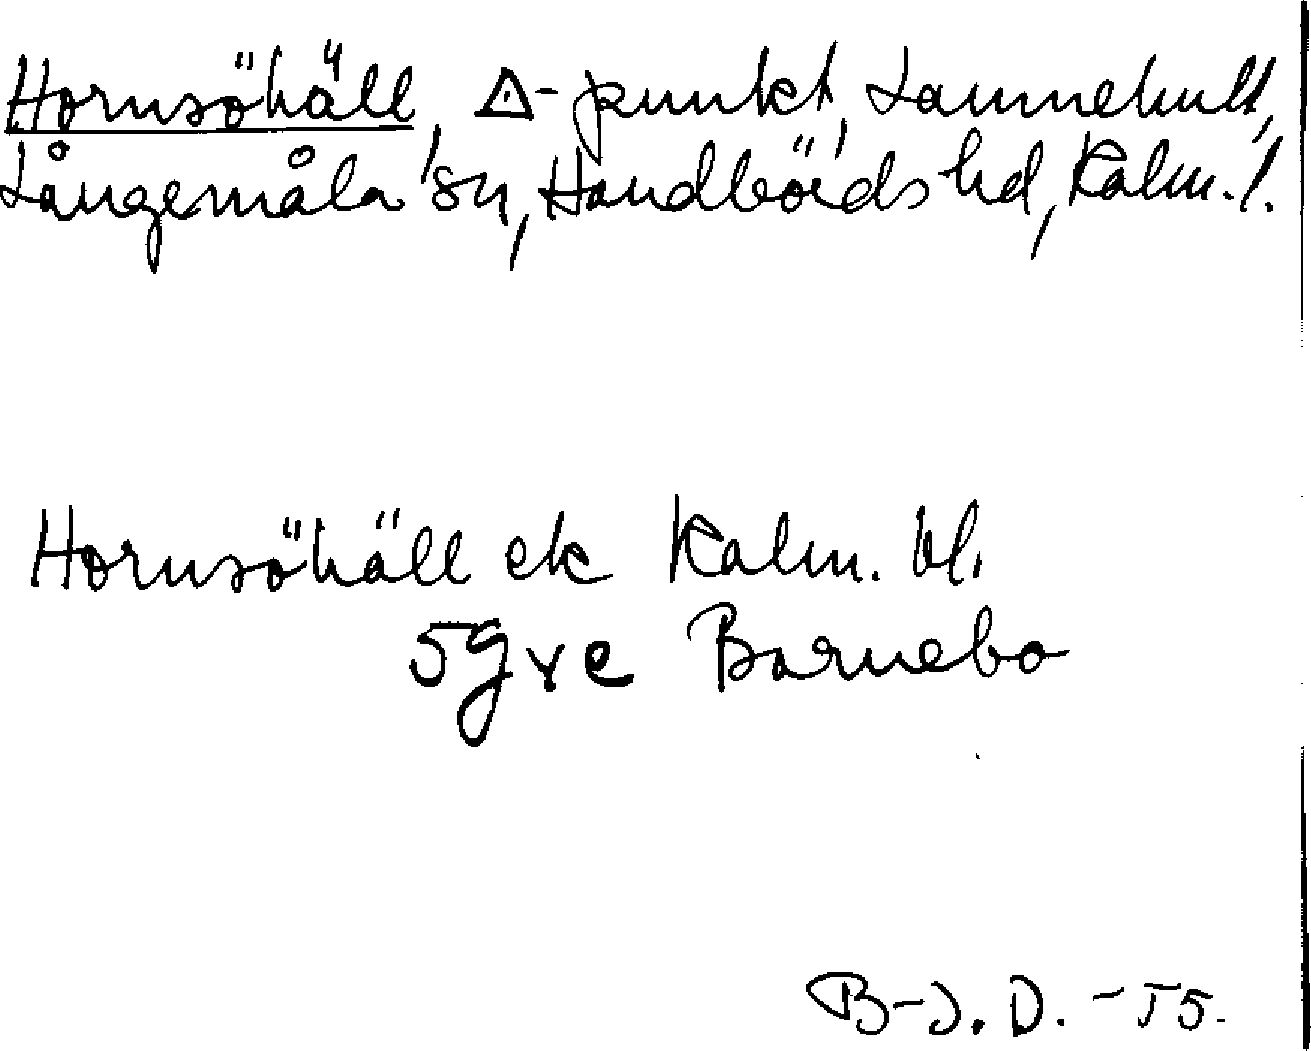 Hornsöhäll, △-punkt, Lannehult,
Långemåla sn, Handbörds hd, Kalm. l.
Hornsöhäll ek Kalm. bl.
5g ve Barnebo
B-J. D. -55.